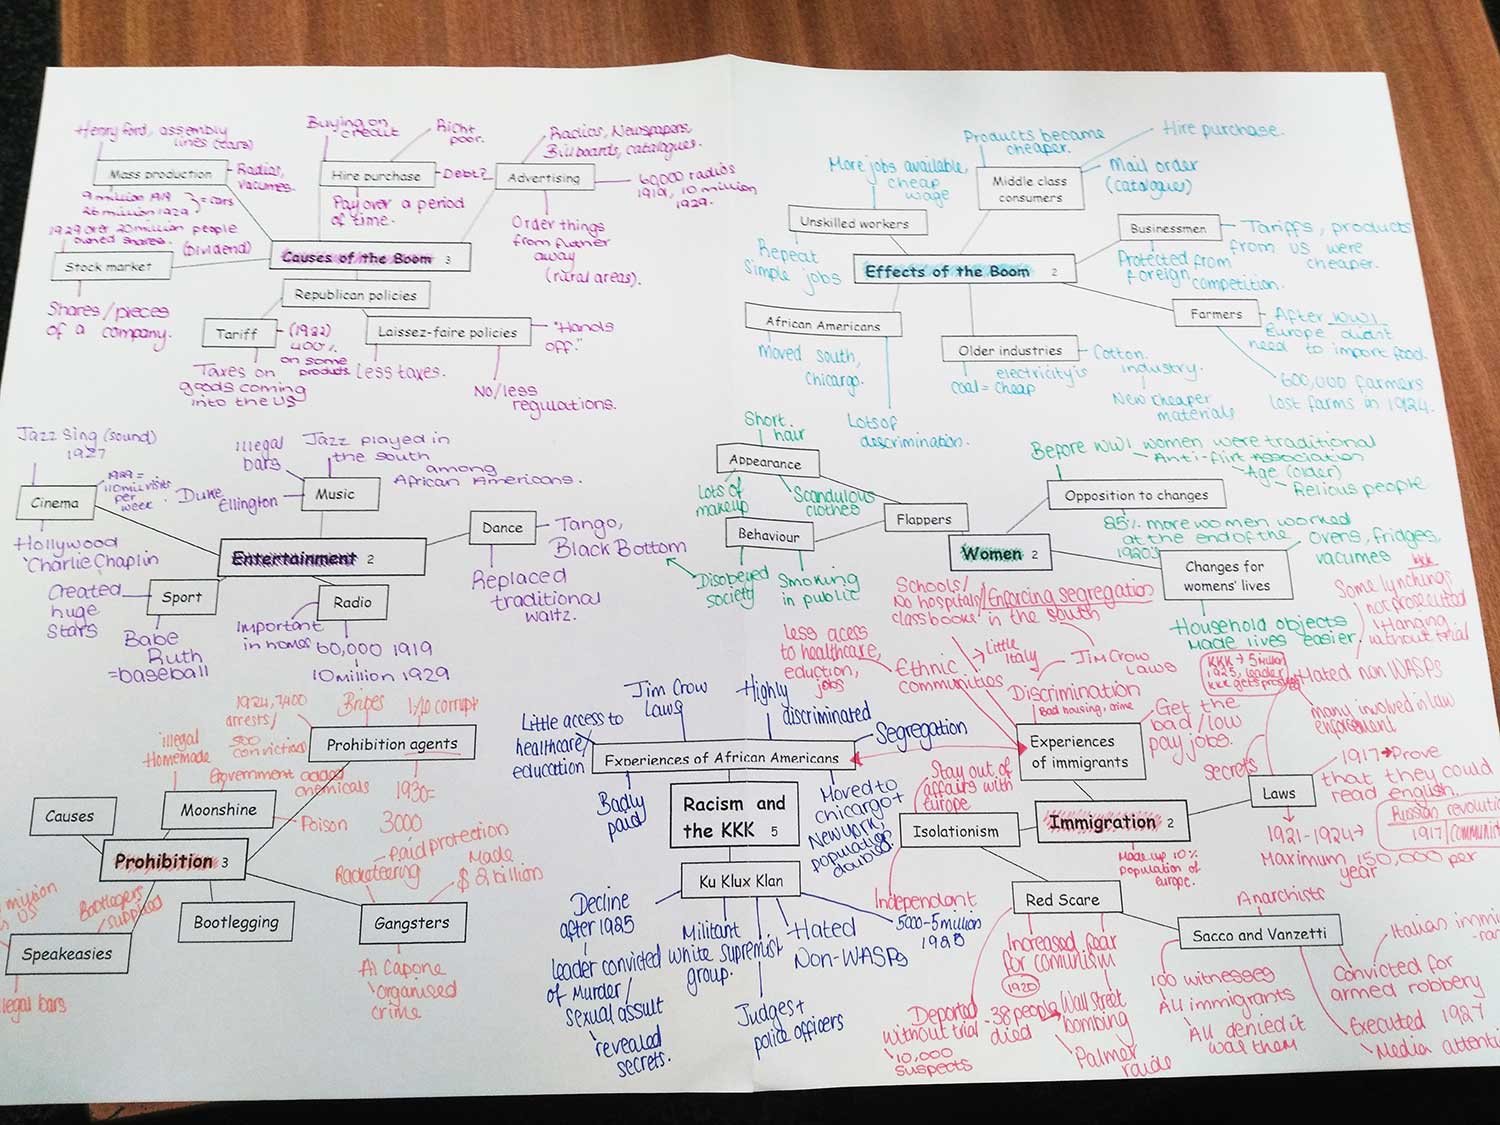 Henry ford, assembly
lines (cars)
Mass production
Radios,
vacumes.
9 million 1919
26 million 1929
= cars
1929 over 20 million people
owned shares.
(Dividend)
Stock market
Shares/pieces
of a company.
Buying on
credit
Right
poor.
Hire purchase
Debt?
Pay over a period
of time.
Radios, Newspapers,
Billboards, catalogues.
Advertising
60,000 radios
1919, 10 million
1929.
Order things
from further
away
(rural areas).
Causes of the Boom 3
Republican policies
Tariff
(1922)
400%
on some
products
Taxes on
goods coming
into the US
Laissez-faire policies
"Hands
off."
Less taxes.
No/less
regulations.
More jobs available,
cheap
wage
Unskilled workers
Repeat
simple jobs
Products became
cheaper.
Hire purchase.
Middle class
consumers
Mail order
(catalogues)
Businessmen
Tariffs, products
from US were
cheaper.
Protected from
foreign competition.
Effects of the Boom 2
African Americans
Moved south,
Chicargo.
Lots of
descrimination.
Older industries
electricity is
coal = cheap
Cotton
industry.
New cheaper
materials
Farmers
After WW1
Europe didn't
need to import food.
600,000 farmers
lost farms in 1924.
Jazz Sing (sound)
1927
Cinema
1929 =
110 mil visits
per
week
Hollywood
Charlie Chaplin
Illegal
bars
Jazz played in
the south
among
African Americans.
Duke
Ellington
Music
Entertainment 2
Dance
Tango,
Black Bottom
Replaced
traditional
waltz.
Created
huge
stars
Sport
Babe
Ruth
=baseball
Radio
Important
in homes
60,000 1919
10 million 1929
Short
hair
Appearance
Lots of
makeup
Scandulous
clothes
Flappers
Behaviour
Disobeyed
society
Smoking
in public
Women 2
Before WW1 women were traditional
Anti-flirt Association
Age (older)
Relious people
Opposition to changes
25% more women worked
at the end of the
1920's
Changes for
womens' lives
Ovens, fridges,
vacumes
Household objects
Made lives easier.
1924, 7,400
arrests/
500
convictions
Bribes
1/10 corrupt
Prohibition agents
1930=
3000
illegal
Homemade
Moonshine
Government added
chemicals
Poison
Causes
Prohibition 3
million
US
Bootleggers
supplied
Speakeasies
legal bars
Bootlegging
Racketeering
Paid protection
Made
$2 billion
Gangsters
Al Capone
organised
crime
Little access to
healthcare/
education
Jim Crow
Laws
Highly
discriminated
Segregation
Experiences of African Americans
Badly
paid
Moved to
chicargo +
New york,
population
doubled.
Racism and
the KKK 5
Ku Klux Klan
Decline
after 1925
leader convicted
of Murder/
sexual assult
revealed
secrets.
Militant
white supremist
group.
Judges +
police officers
Hated
Non-WASPs
5000-5 million
Schools/
No hospitals/
class books
Enforcing segregation
in the south
less acess
to healthcare,
eduction,
jobs
Ethnic
communities
Little
Italy
Jim Crow
Laws
Discrimination
Bad housing, crime
Get the
bad/low
pay jobs.
Experiences
of immigrants
KKK
Some lynchings
not prosecuted
Hanging
without trial
KKK → 5 million
1925, leader
Hated non WASPs
many involved in law
enforcement
secrets
Laws
1917 → Prove
that they could
read english.
1921-1924 →
Maximum 150,000 per
year
Russian revolution
1917
Immigration 2
Made up 10%
population of
europe.
Stay out of
affairs with
Europe
Isolationism
Independant
Red Scare
Increased fear
for comunism
1920
38 people
died
Wall Street
bombing
Palmer
raide
Deported
without trial
10,000
suspects
Anarchists
Sacco and Vanzetti
100 witnesses
All immigrants
All denied it
was them
Italian immi
Convicted for
armed robbery
Executed 1927
Media attenti